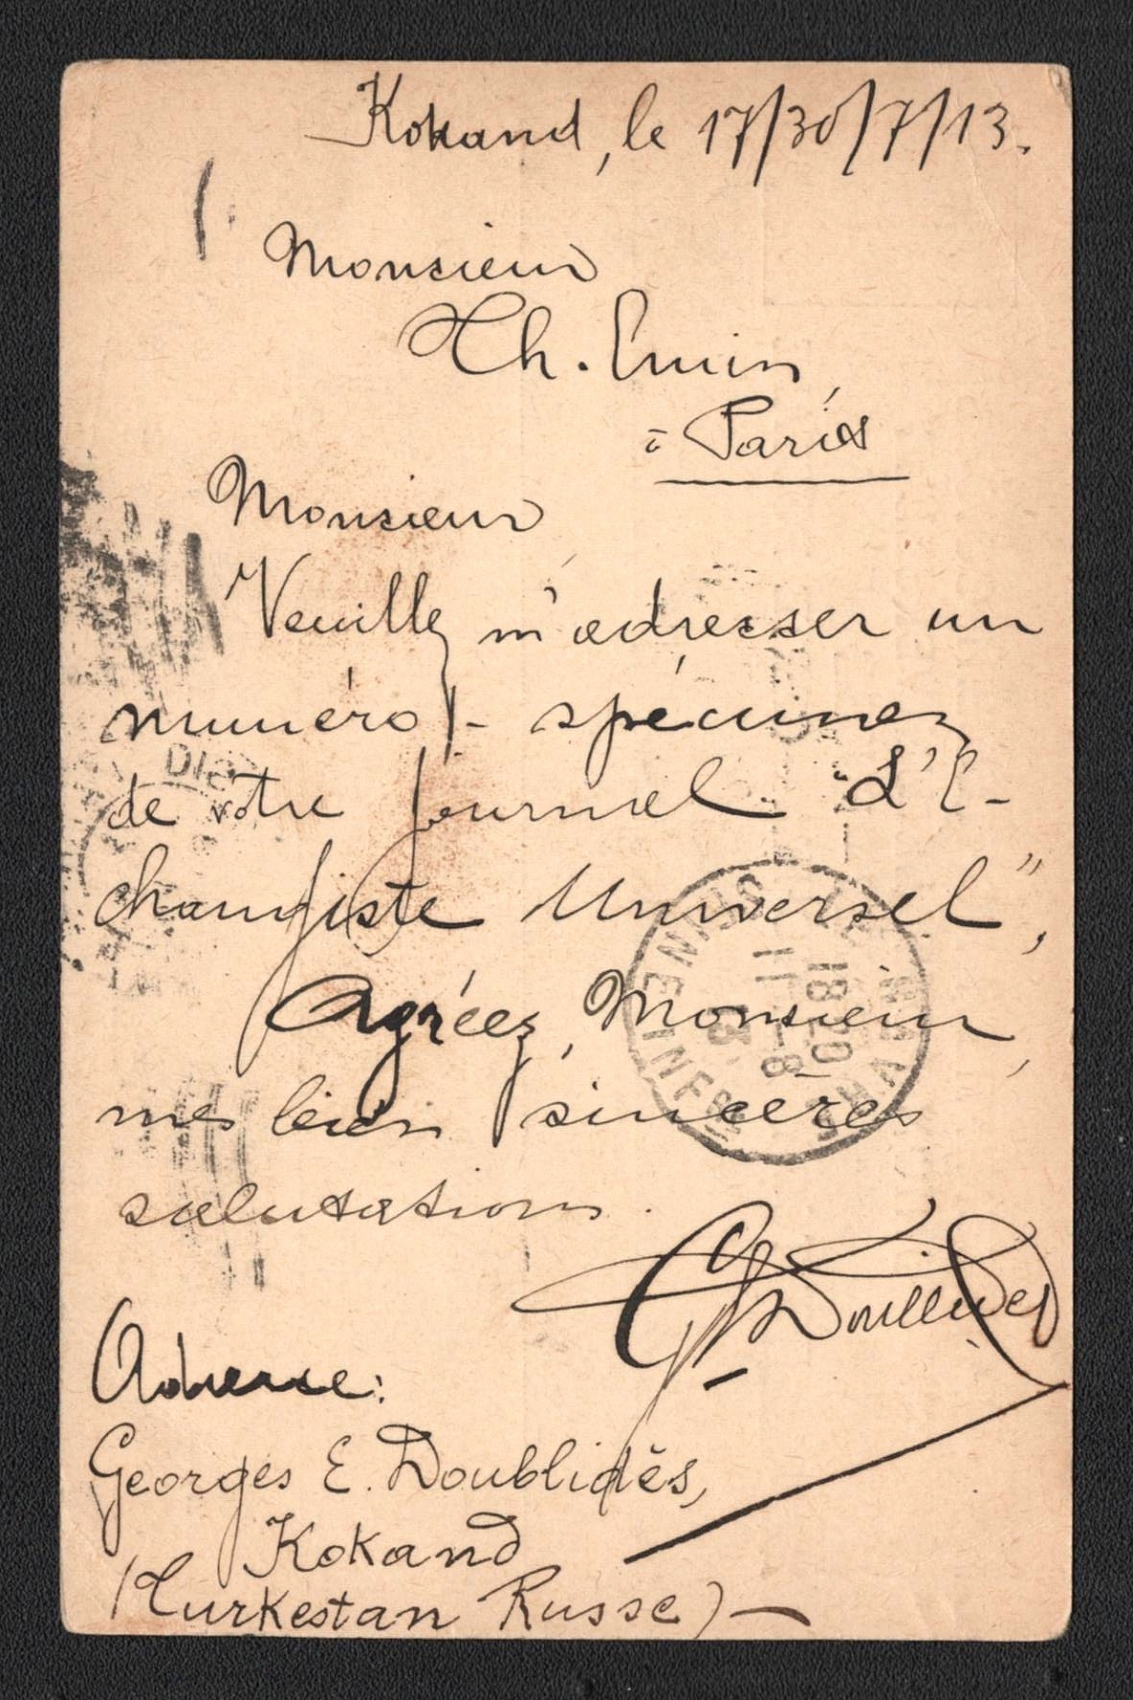 Kokand, le 17/30/7/13.
Monsieur
Th. Emin,
à Paris
Monsieur
Veuillez m'adresser un
numéro - spécimen
de votre journal "L'E-
changiste Universel",
Agréez, Monsieur,
mes bien sincères
salutations.
G. Doublidès
Adresse:
Georges E. Doublidès,
Kokand
(Turkestan Russe) —
18 20
11 - 8
13
SEINE INFRE